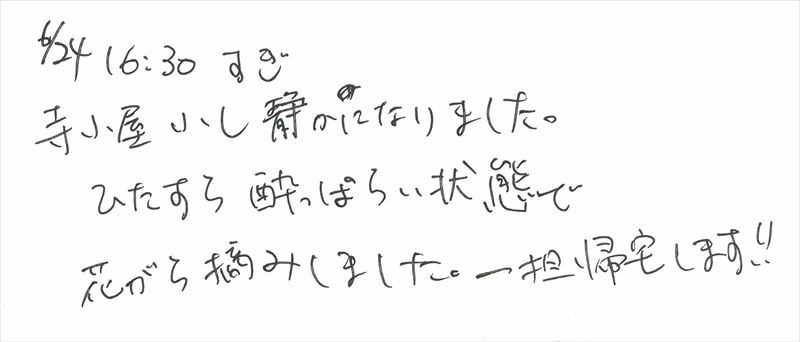 6/24 16:30 すぎ
寺小屋 小し 静かになりました。
ひたすら 酔っぱらい状態で
花がら摘みしました。一担帰宅します!!